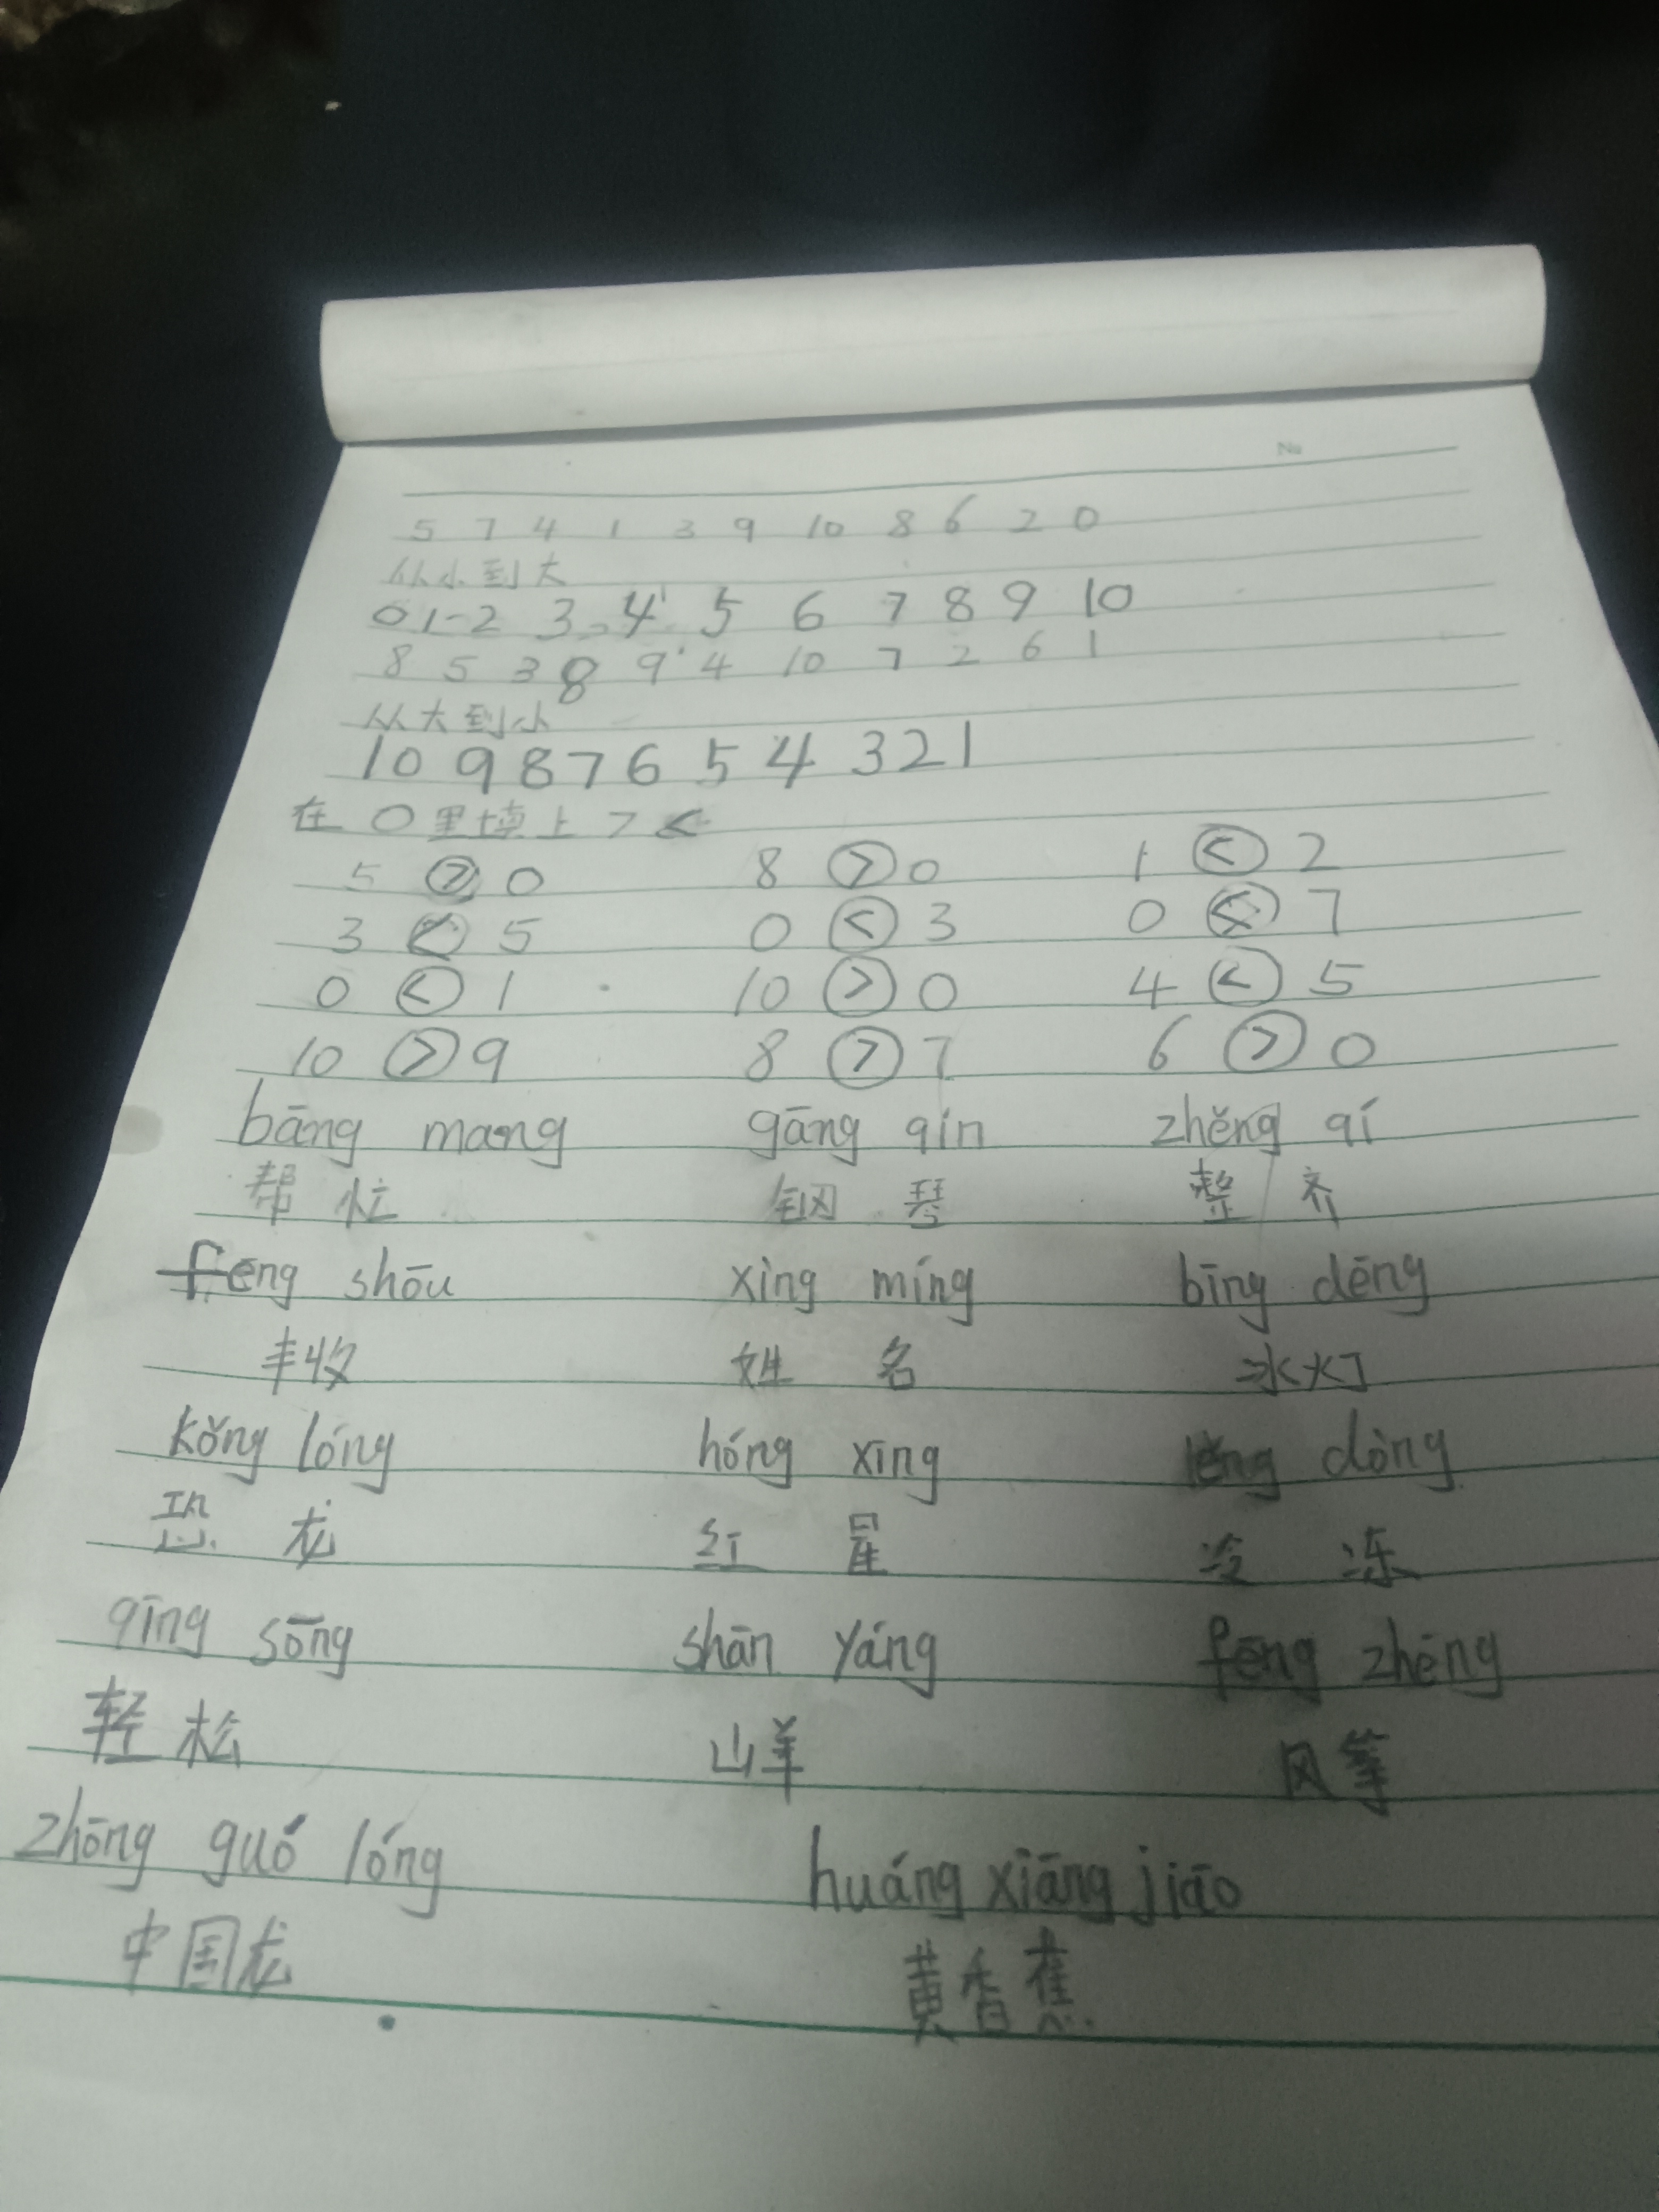 No
5 7 4 1 3 9 10 8 6 2 0
从小到大
0 1 2 3 4 5 6 7 8 9 10
8 5 3 8 9 4 10 7 2 6 1
从大到小
10 9 8 7 6 5 4 3 2 1
在 ○ 里填上 > <
5 > 0 8 > 0 1 < 2
3 < 5 0 < 3 0 < 7
0 < 1 10 > 0 4 < 5
10 > 9 8 > 7 6 > 0
bāng mang gāng qín zhěng qí
帮 忙 钢 琴 整 齐
fēng shōu xìng míng bīng dēng
丰收 姓 名 冰灯
kǒng lóng hóng xīng lěng dòng
恐 龙 红 星 冷 冻
qīng sōng shān yáng fēng zhēng
轻 松 山羊 风筝
zhōng guó lóng huáng xiāng jiāo
中国龙 黄香蕉